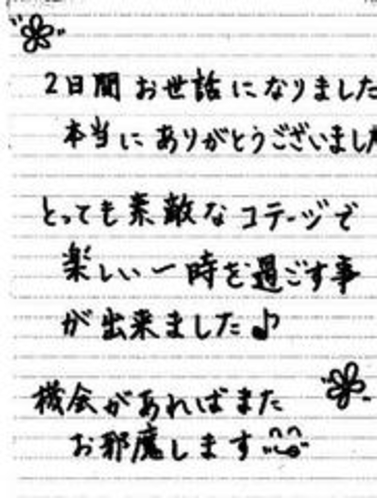 2日間お世話になりました
本当にありがとうございました
とっても素敵なコテージで
楽しい一時を過ごす事
が出来ました♪
機会があればまた
お邪魔します